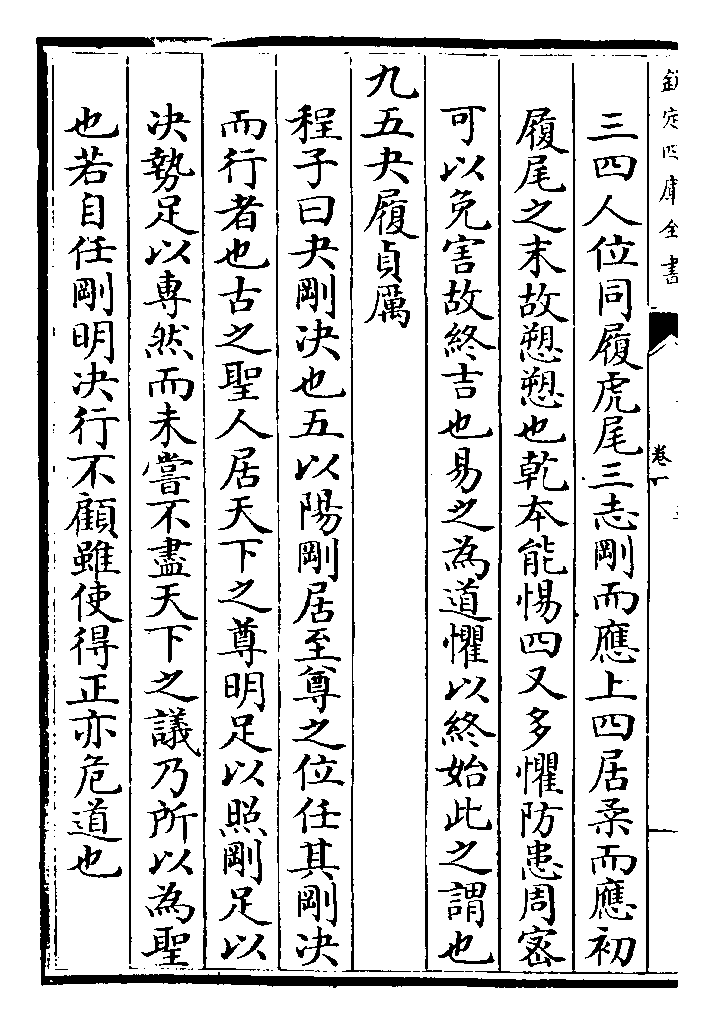 欽定四庫全書
卷一
三四人位同履虎尾三志剛而應上四居柔而應初
履尾之末故愬愬也乾本能惕四又多懼防患周密
可以免害故終吉也易之為道懼以終始此之謂也
九五夬履貞厲
程子曰夬剛决也五以陽剛居至尊之位任其剛决
而行者也古之聖人居天下之尊明足以照剛足以
决勢足以專然而未嘗不盡天下之議乃所以為聖
也若自任剛明决行不顧雖使得正亦危道也